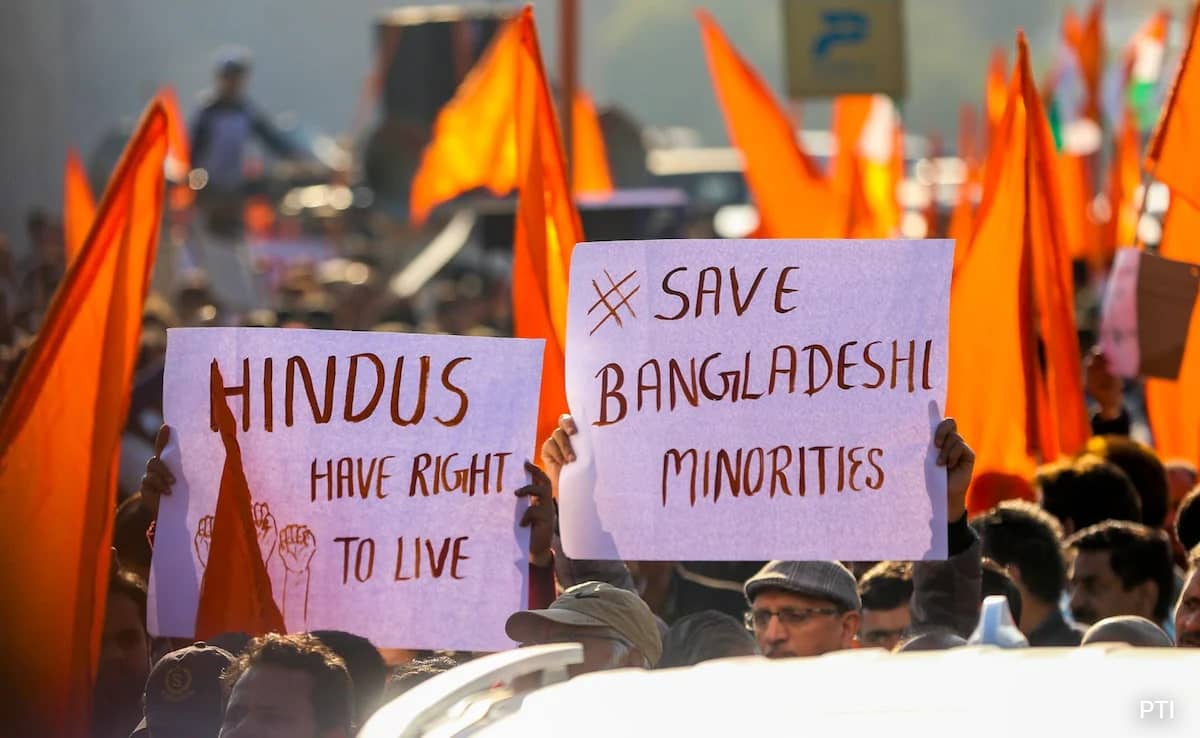 HINDUS
HAVE RIGHT
TO LIVE
# SAVE
BANGLADESHI
MINORITIES
PTI